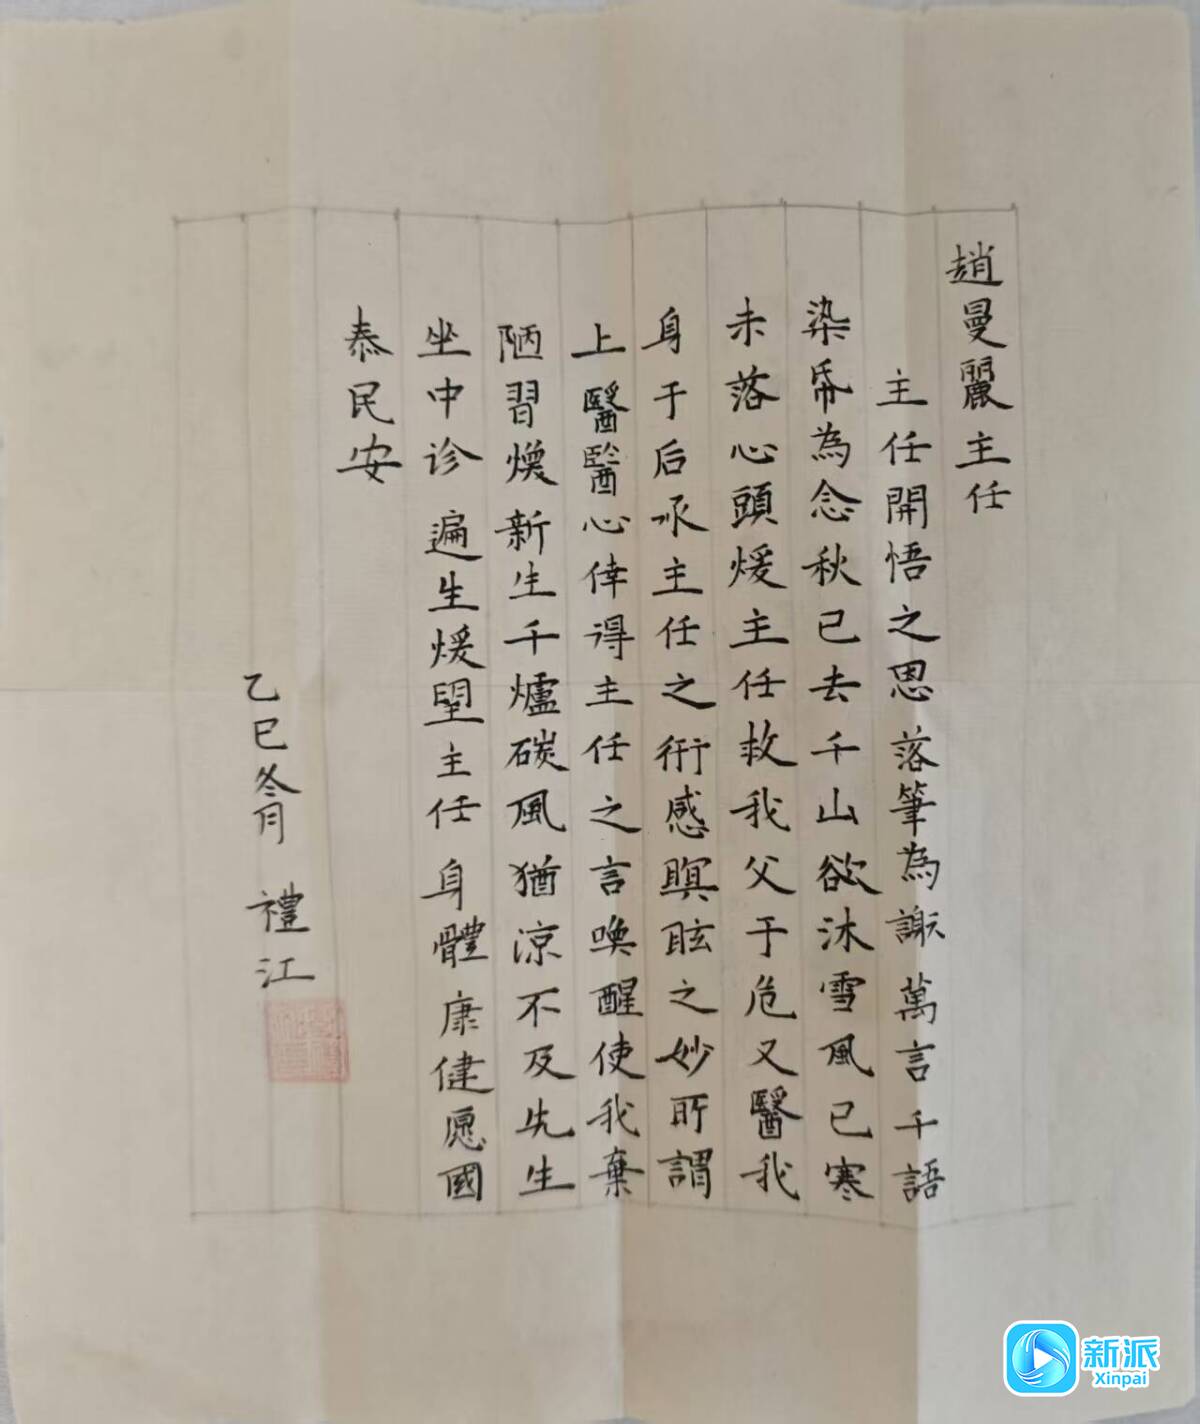 趙曼麗主任
主任開悟之恩落筆為謝萬言千語
染帋為念秋已去千山欲沐雪風已寒
未落心頭煖主任救我父于危又醫我
身于后承主任之術感瞑眩之妙所謂
上醫醫心倖得主任之言喚醒使我棄
陋習煥新生千爐碳風猶涼不及先生
坐中诊遍生煖望主任身體康健愿國
泰民安
乙巳冬月 禮江
新派
Xinpai